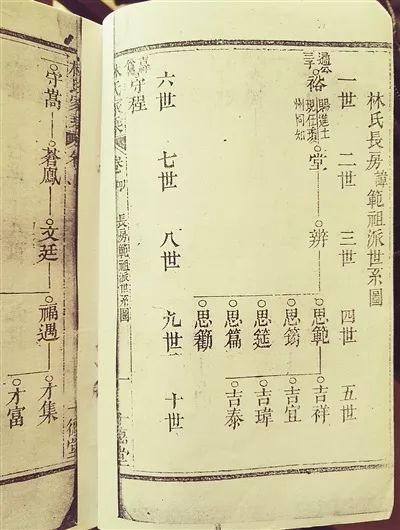 林氏長房諱範祖派世系圖
一世 二世 三世 四世 五世
裕
賜進士
現任瓊
州同知
堂 辨 思範 吉祥
吉宜
思筵 吉瑋
思篇 吉泰
六世 七世 八世 九世 十世
守程
林氏家乘
長房範祖派世系圖 一
守嵩 蒼鳳 文廷 福遇 才集
才富
十德堂